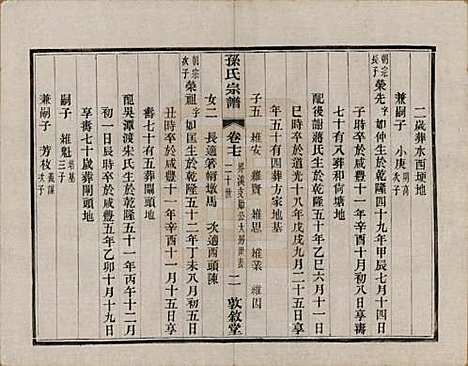 二歲葬水西埂地
兼嗣子 小庚 明高次子
朝宗長子 榮先 字如仲生於乾隆四十九年甲辰七月十四日
子時卒於咸豐十一年辛酉十月初八日享壽
七十有八葬和尙塘
配後謝蔣氏生於乾隆五十年乙巳六月十一日
巳時卒於道光十八年戊戌九月二十五日享
年五十有四葬方家地基
子五 雄安 雄賢 雄思 雄業 雄因
孫氏宗譜 卷七 二十世 二 敦敘堂
女二 長適箬帽墩馬 次適西頭陳
朝宗次子 榮祖 字如 生於乾隆五十二年丁未八月初五日
丑時卒於咸豐十一年辛酉十一月十五日享
壽七十有五葬閘頭地
配吳潭渡宋氏生於乾隆五十一年丙午十二月
初一日辰時卒於咸豐五年乙卯十月十九日
享壽七十歲葬閘頭地
嗣子 雄魁 三子
兼嗣子 芳枝 次子